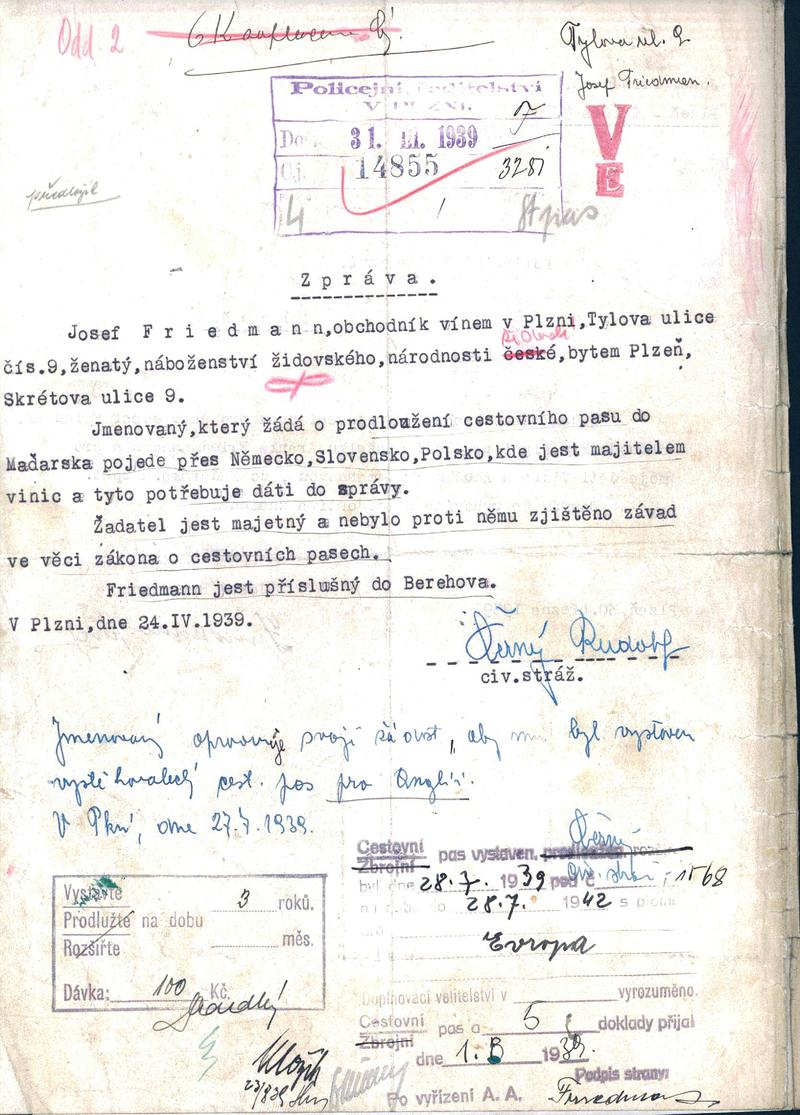 Odd. 2
Tylova ul. 9
Josef Friedmann.
Policejní ředitelství
V PLZNI.
Do 31. III. 1939 7
Č.j. 14855 3281
4
VE
předvolání
Zpráva.
Josef Friedmann,obchodník vínem v Plzni,Tylova ulice
židovské
čís.9,ženatý,náboženství židovského,národnosti české,bytem Plzeň,
Skrétova ulice 9.
Jmenovaný,který žádá o prodloužení cestovního pasu do
Maďarska pojede přes Německo,Slovensko,Polsko,kde jest majitelem
vinic a tyto potřebuje dáti do správy.
Žadatel jest majetný a nebylo proti němu zjištěno závad
ve věci zákona o cestovních pasech.
Friedmann jest příslušný do Berehova.
V Plzni,dne 24.IV.1939.
Černý Rudolf
civ.stráž.
Jmenovaný opravuje svoji žádost, aby mu byl vystaven
vystěhovalecký cest. pas pro Anglii.
V Plzni, dne 27.7.1939.
Černý
civ. stráž
Cestovní pas vystaven, prodloužen
Zbrojní
byl dne 28.7. 1939 pod č. 1568
28.7. 1942 s platn
Evropa
Vystavte
Prodlužte na dobu 3 roků.
Rozšiřte měs.
Dávka: 100 Kč.
Doplňovací velitelství v vyrozuměno.
Cestovní pas a 5 doklady přijal
Zbrojní
dne 1.8 1939.
Podpis strany:
Po vyřízení A. A. Friedmann